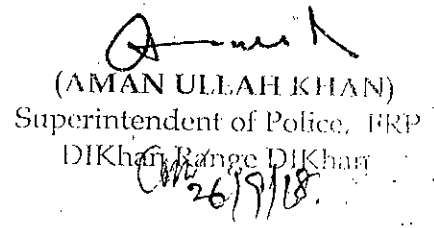 (AMAN ULLAH KHAN)
Superintendent of Police, FRP
DIKhan Range DIKhan
26/9/18.